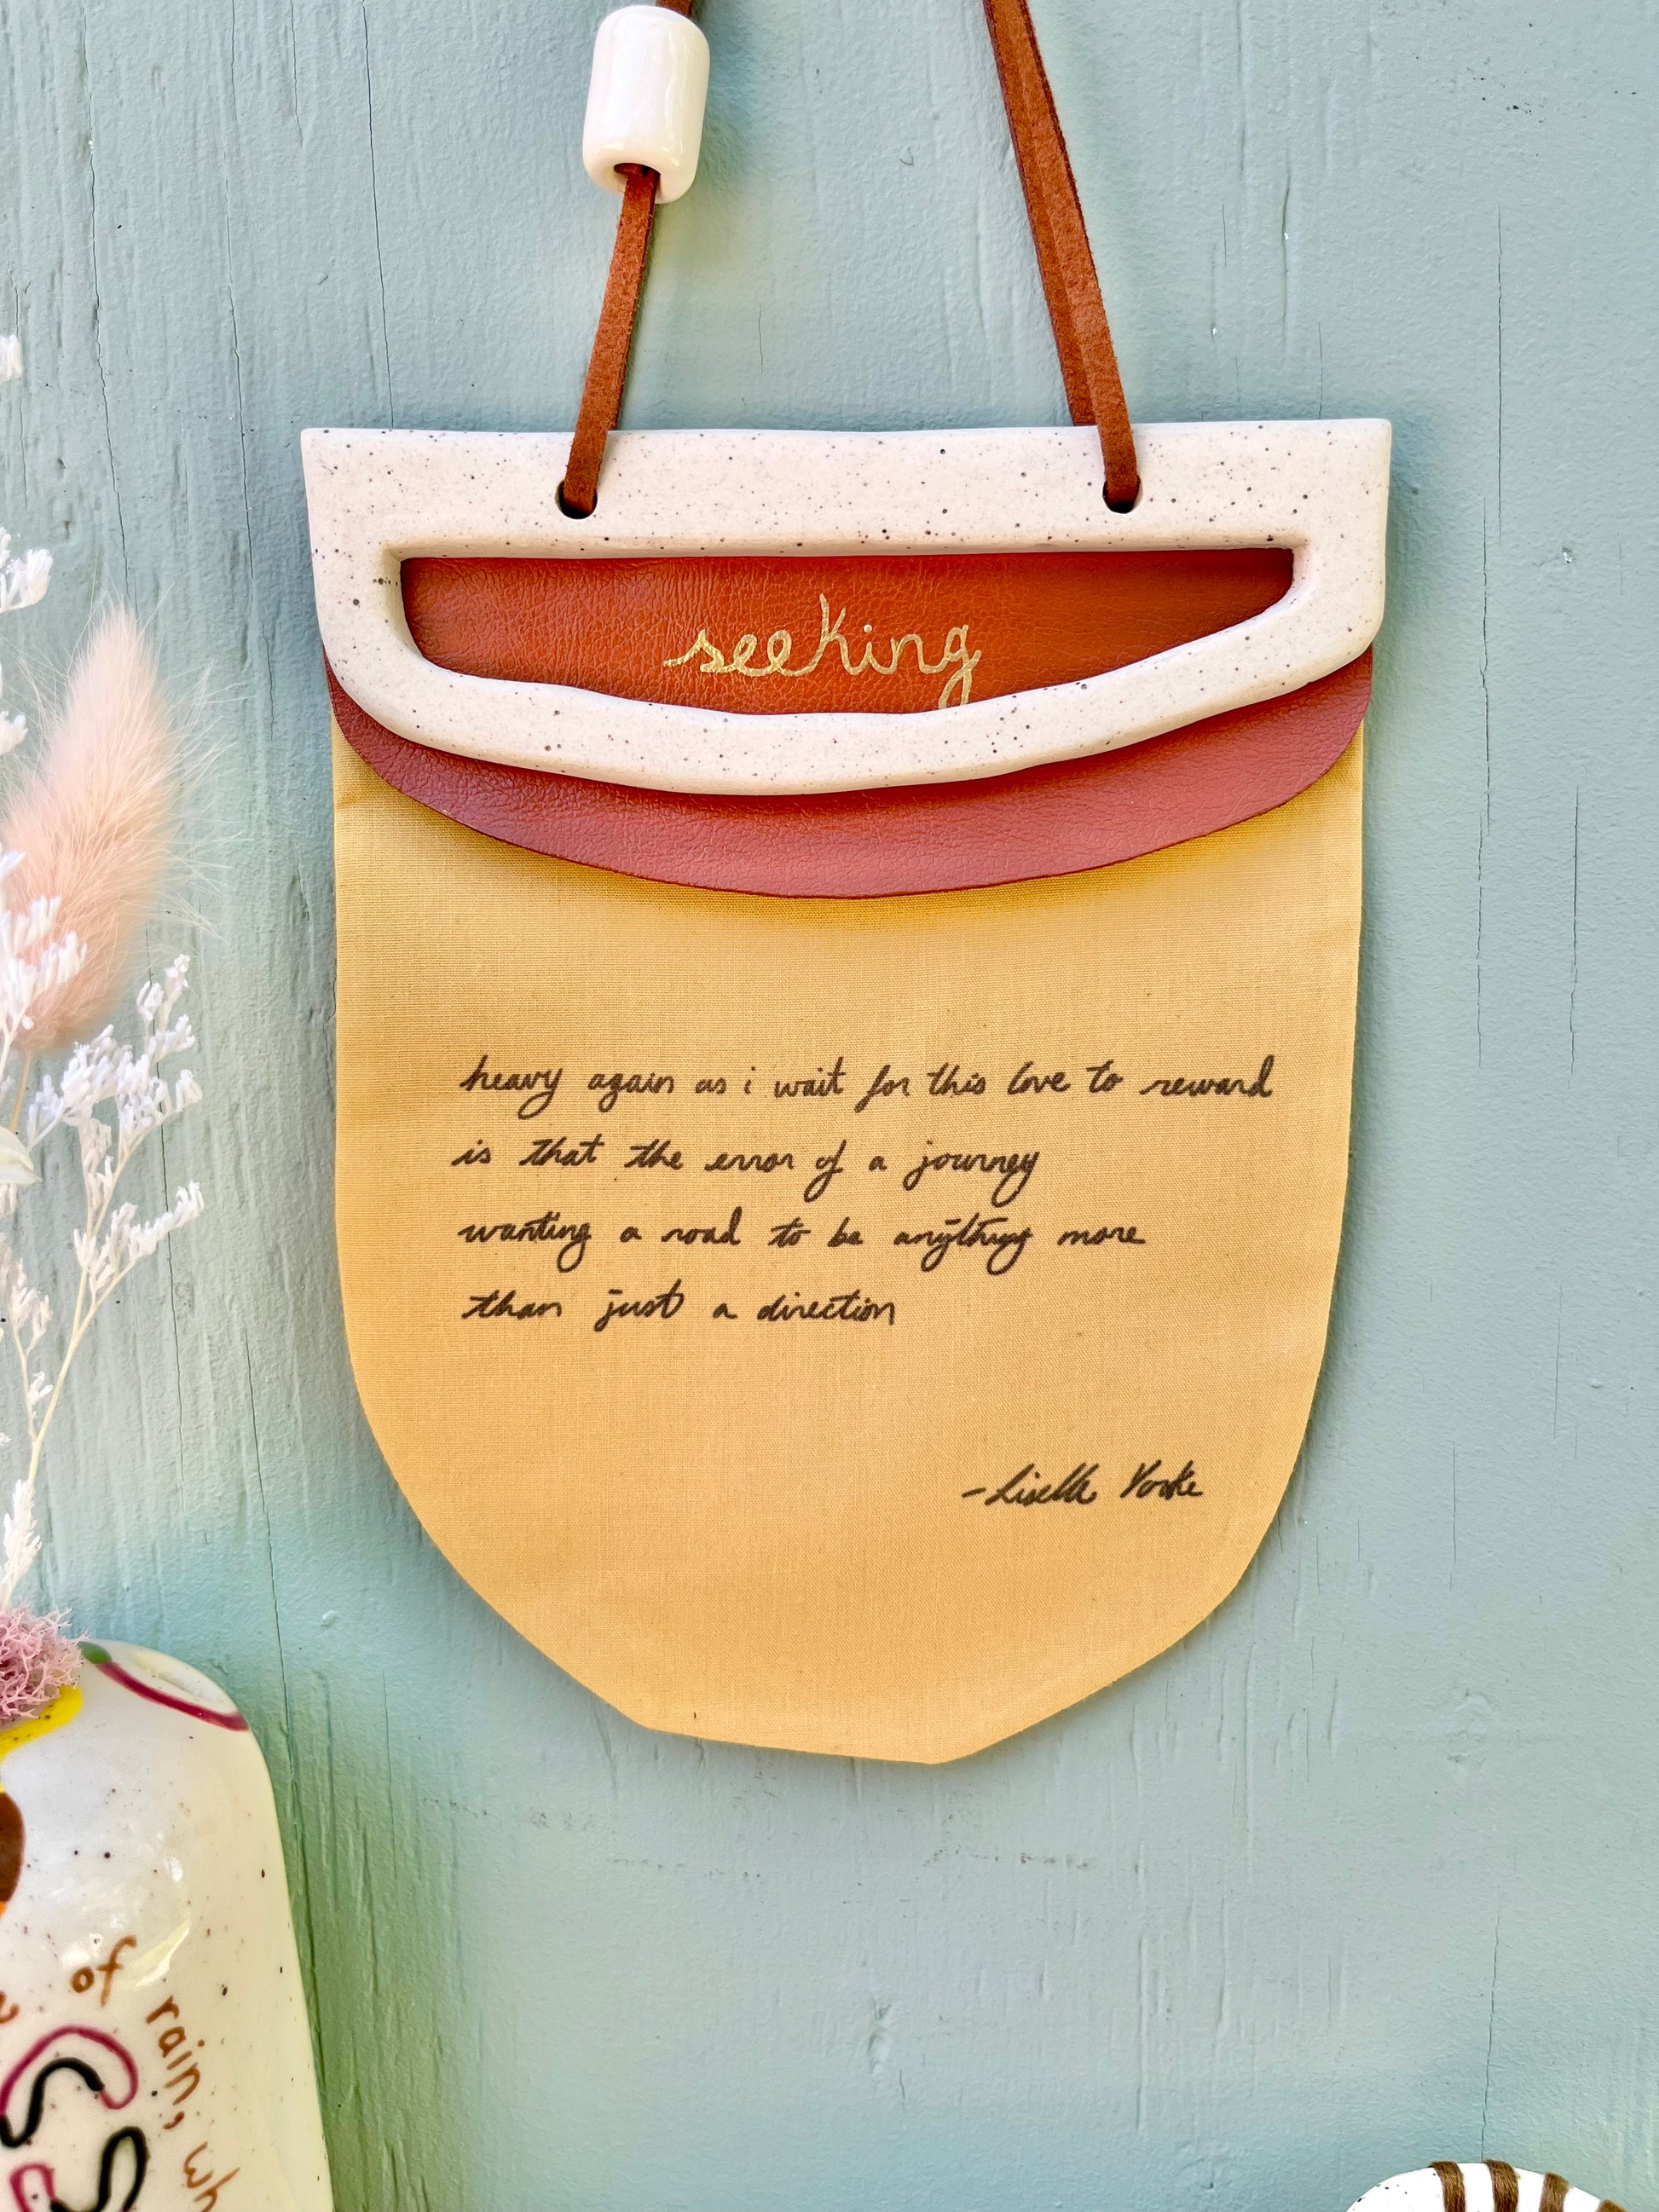 seeking
heavy again as i wait for this love to reward
is that the error of a journey
wanting a road to be anything more
than just a direction
-Liselle Yorke
of
rain,
wh